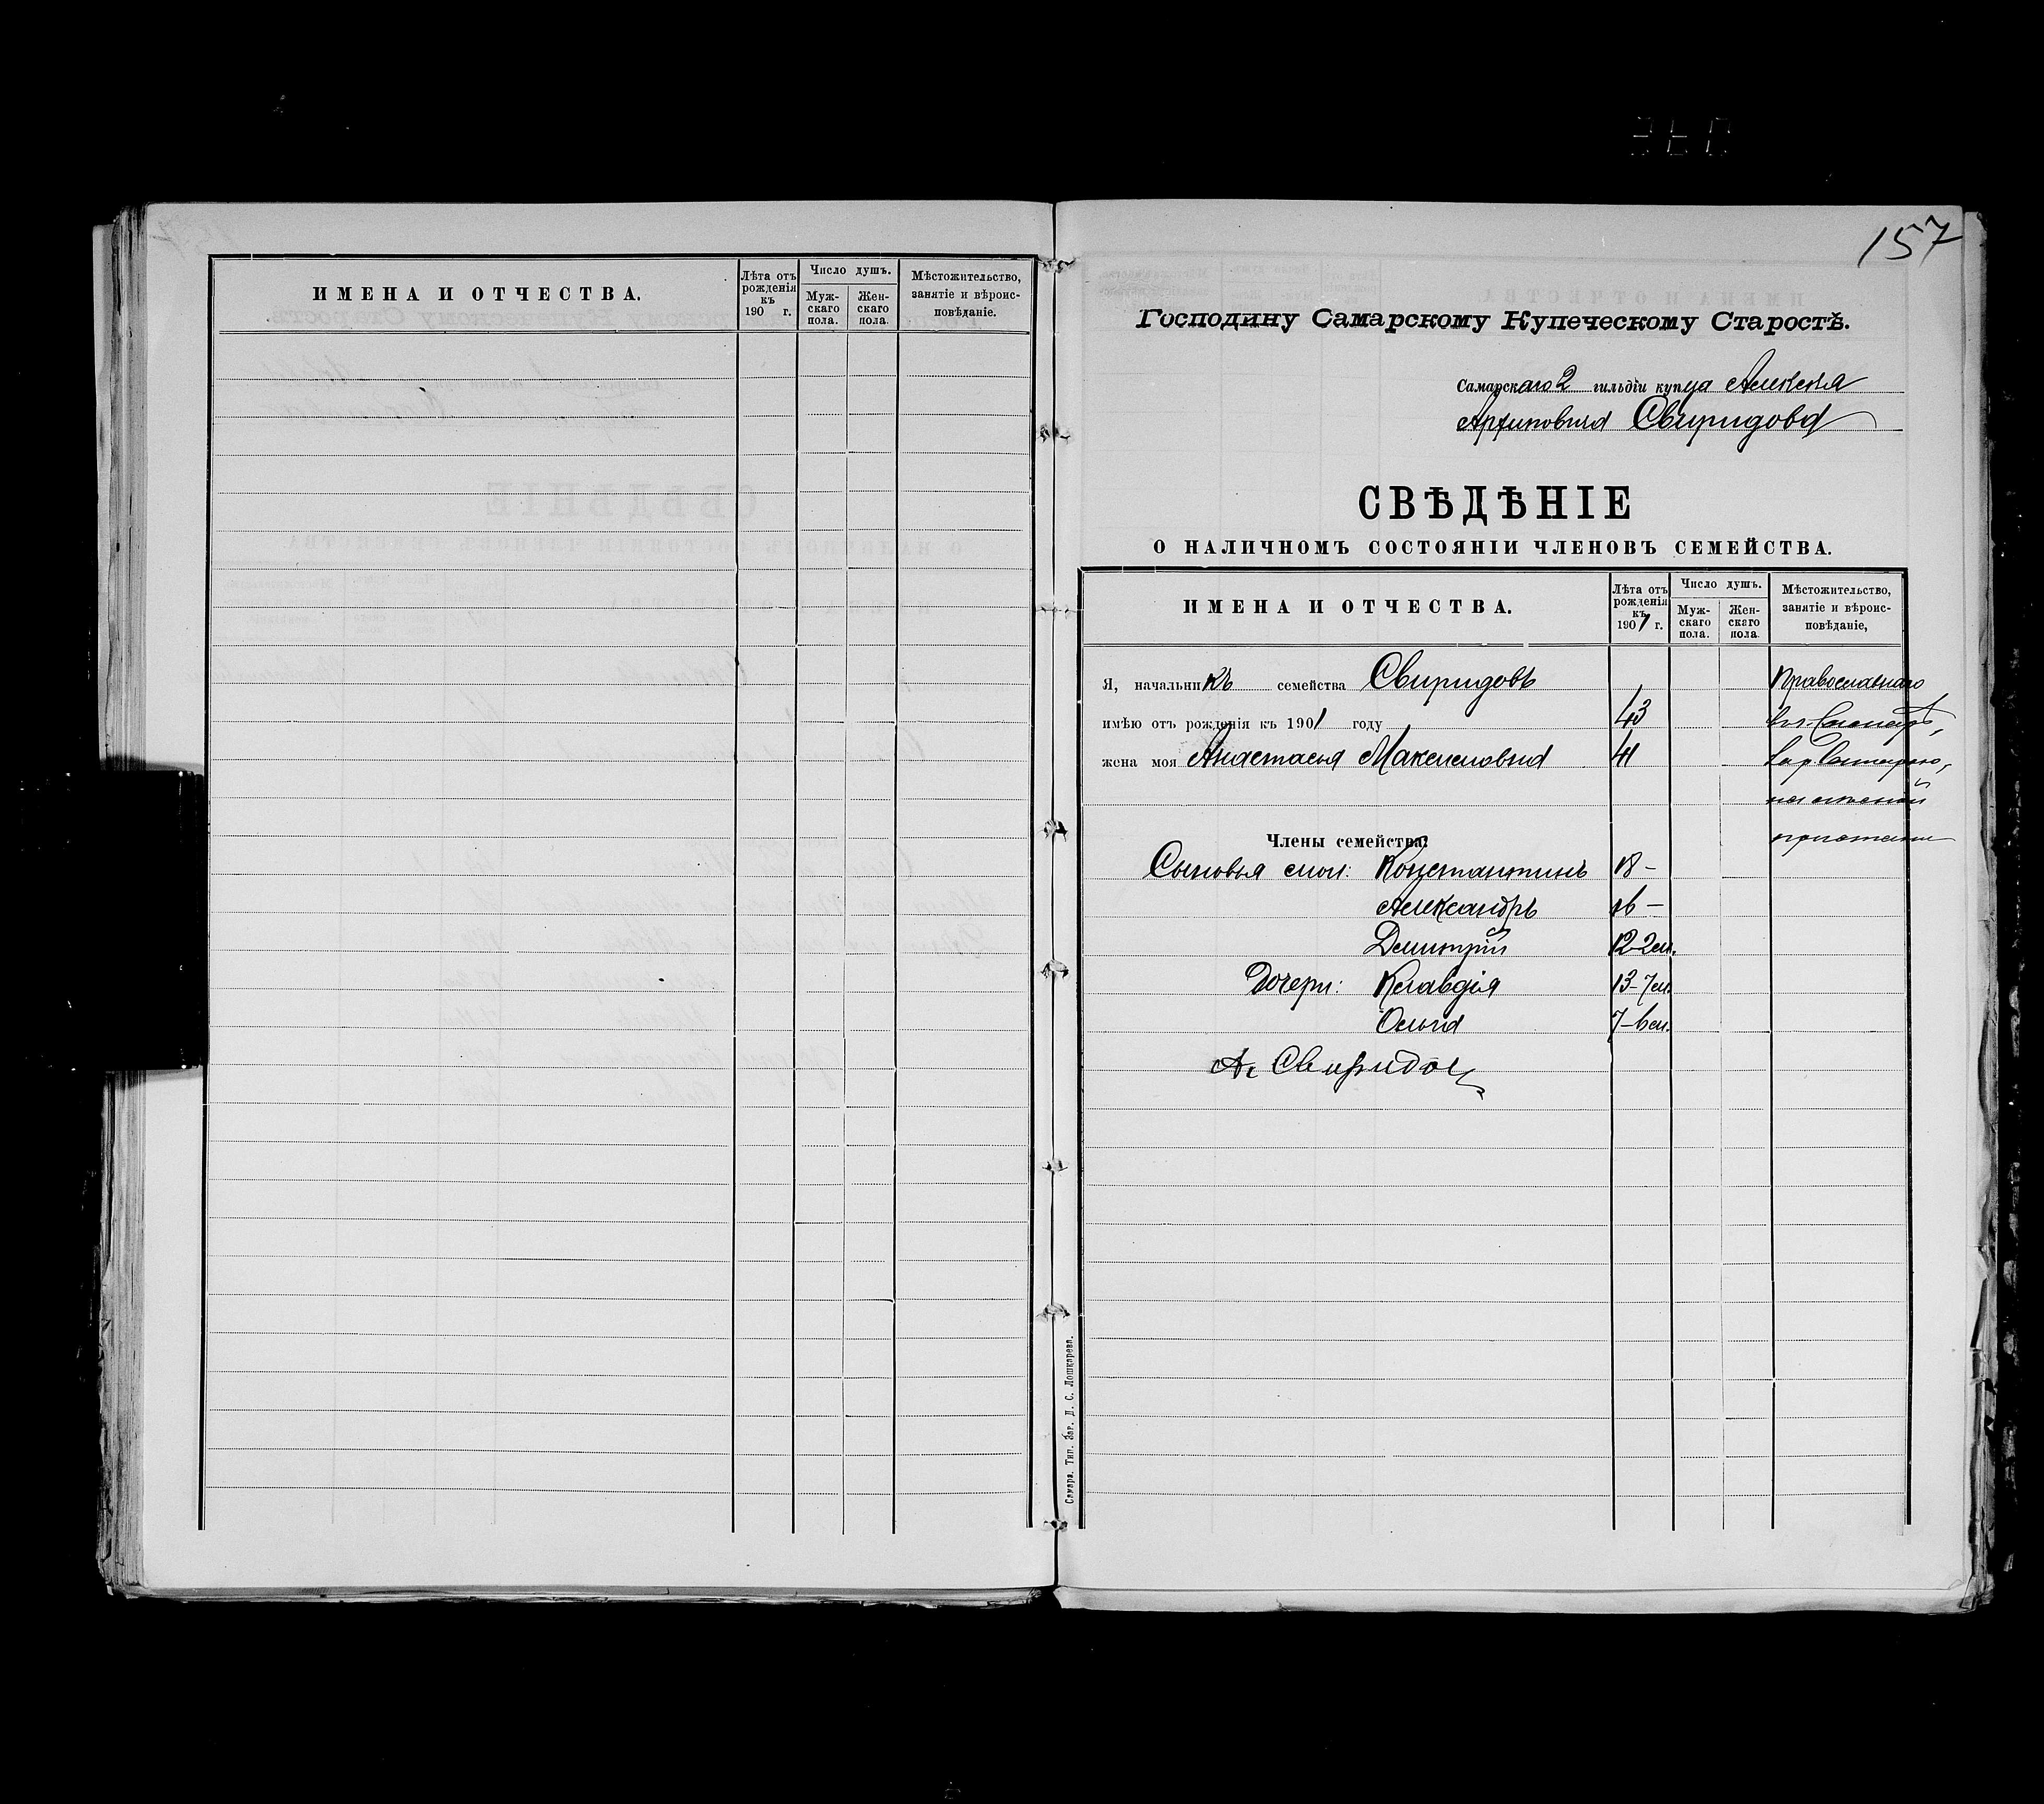 ИМЕНА И ОТЧЕСТВА.
Лѣта отъ рожденія къ 190 г.
Число душъ.
Мужскаго пола.
Женскаго пола.
Мѣстожительство, занятіе и вѣроисповѣданіе.
157
Господину Самарскому Купеческому Старостѣ.
Самарскаго 2 гильдіи купца Алексѣя
Архиповича Свиридова
СВѢДѢНІЕ
О НАЛИЧНОМЪ СОСТОЯНІИ ЧЛЕНОВЪ СЕМЕЙСТВА.
ИМЕНА И ОТЧЕСТВА.
Лѣта отъ рожденія къ 1901 г.
Число душъ.
Мужскаго пола.
Женскаго пола.
Мѣстожительство, занятіе и вѣроисповѣданіе,
Я, начальникъ семейства Свиридовъ Православнаго
имѣю отъ рожденія къ 1901 году 43
жена моя Анастасья Максимовна 41
Члены семейства: пристани
Сыновья мои: Константинъ 18 —
Александръ 16 —
Димитрій 12-2 м.
Дочери: Клавдія 13-7 м.
Ольга 7-6 м.
А. Свиридов
Самара. Тип. Заг. Д. С. Лошкарева.